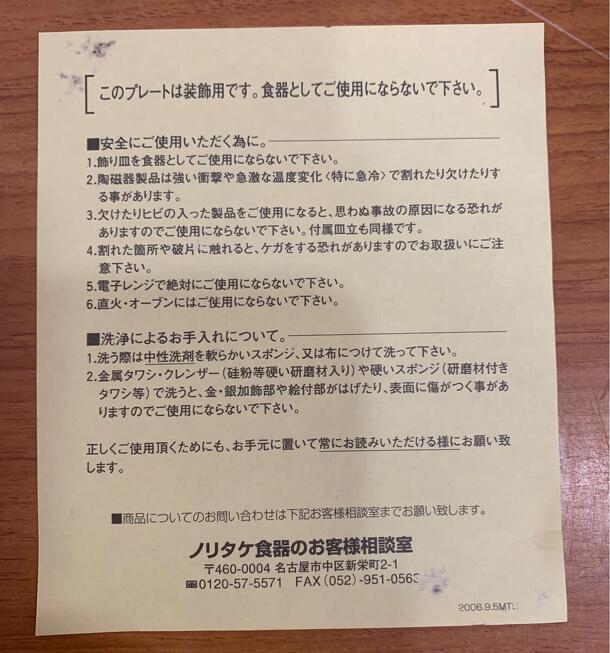 このプレートは装飾用です。食器としてご使用にならないで下さい。
■安全にご使用いただく為に。
1.飾り皿を食器としてご使用にならないで下さい。
2.陶磁器製品は強い衝撃や急激な温度変化〈特に急冷〉で割れたり欠けたりす
る事があります。
3.欠けたりヒビの入った製品をご使用になると、思わぬ事故の原因になる恐れが
ありますのでご使用にならないで下さい。付属皿立も同様です。
4.割れた箇所や破片に触れると、ケガをする恐れがありますのでお取扱いにご注
意下さい。
5.電子レンジで絶対にご使用にならないで下さい。
6.直火・オーブンにはご使用にならないで下さい。
■洗浄によるお手入れについて。
1.洗う際は中性洗剤を軟らかいスポンジ、又は布につけて洗って下さい。
2.金属タワシ・クレンザー(硅粉等硬い研磨材入り)や硬いスポンジ(研磨材付き
タワシ等)で洗うと、金・銀加飾部や絵付部がはげたり、表面に傷がつく事があ
りますのでご使用にならないで下さい。
正しくご使用頂くためにも、お手元に置いて常にお読みいただける様にお願い致
します。
■商品についてのお問い合わせは下記お客様相談室までお願い致します。
ノリタケ食器のお客様相談室
〒460-0004 名古屋市中区新栄町2-1
0120-57-5571 FAX(052)-951-056
2006.9.5MT